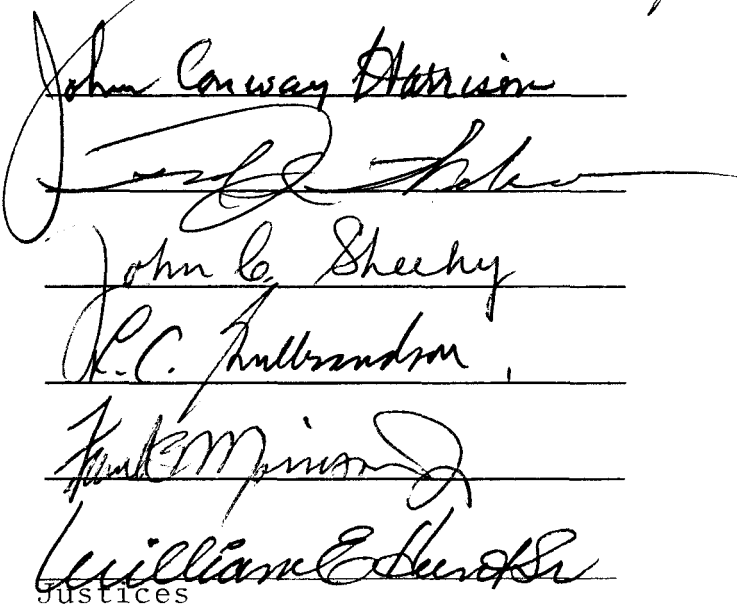 John Conway Harrison
John C. Sheehy
L.C. Gulbrandson
Frank B Morrison Jr
William E Hunt Sr
Justices